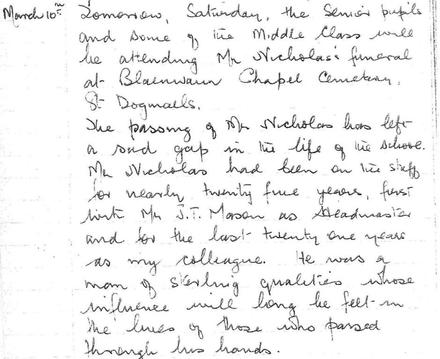 March 10th Tomorrow, Saturday, the Senior pupils
and some of the Middle Class will
be attending Mr Nicholas's funeral
at Blaenwaun Chapel Cemetery,
St Dogmaels.
The passing of Mr Nicholas has left
a sad gap in the life of the school.
Mr Nicholas had been on the staff
for nearly twenty five years, first
with Mr J.T. Mason as Headmaster
and for the last twenty one years
as my colleague. He was a
man of sterling qualities whose
influence will long be felt in
the lives of those who passed
through his hands.